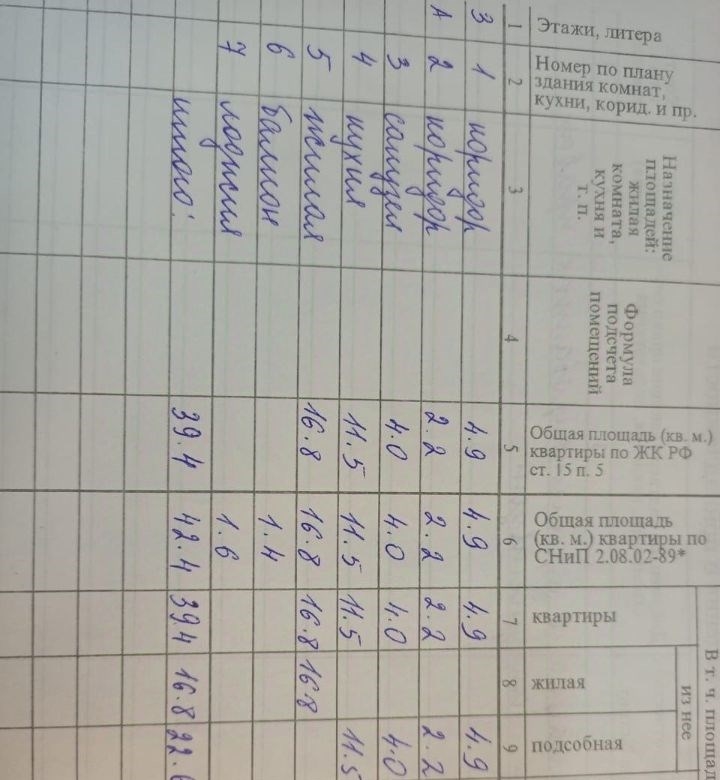 Этажи, литера
Номер по плану
здания комнат,
кухни, корид. и пр.
Назначение
площадей:
жилая
комната,
кухня и
т. п.
Формула
подсчета
помещений
Общая площадь (кв. м.)
квартиры по ЖК РФ
ст. 15 п. 5
Общая площадь
(кв. м.) квартиры по
СНиП 2.08.02-89*
В т. ч. площадь
квартиры
из нее
жилая
подсобная
1 2 3 4 5 6 7 8 9
3 1 коридор 4.9 4.9 4.9 4.9
А 2 коридор 2.2 2.2 2.2 2.2
3 санузел 4.0 4.0 4.0 4.0
4 кухня 11.5 11.5 11.5 11.5
5 жилая 16.8 16.8 16.8 16.8
6 балкон 1.4
7 лоджия 1.6
итого: 39.4 42.4 39.4 16.8